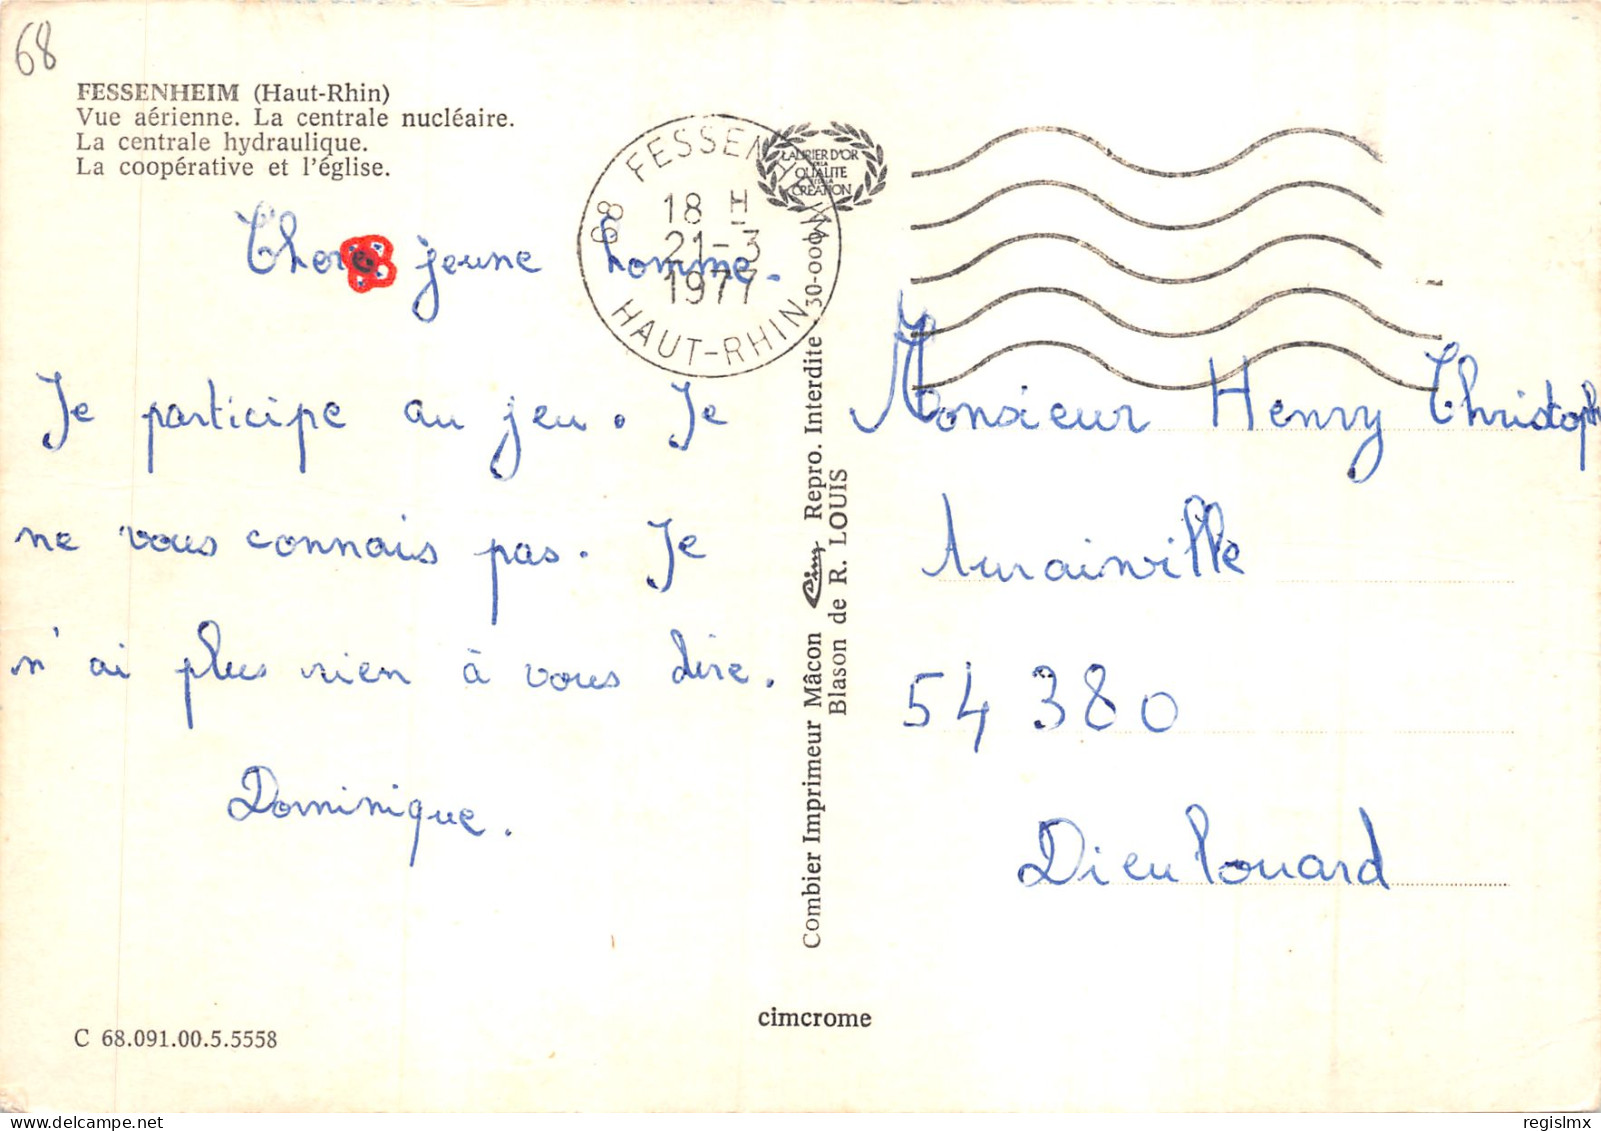 68
FESSENHEIM (Haut-Rhin)
Vue aérienne. La centrale nucléaire.
La centrale hydraulique.
La coopérative et l'église.
68 FESSENHEIM
18 H
21-3
1977
HAUT-RHIN
LAURIER D'OR
DE LA
QUALITE
CREATION
Cher jeune homme.
Je participe au jeu. Je
ne vous connais pas. Je
n'ai plus rien à vous dire.
Dominique.
Combier Imprimeur Mâcon Cim Repro. Interdite 30-000
Blason de R. LOUIS
Monsieur Henry Christoph
Aurainville
54 380
Dieulouard
cimcrome
C 68.091.00.5.5558
regislmx